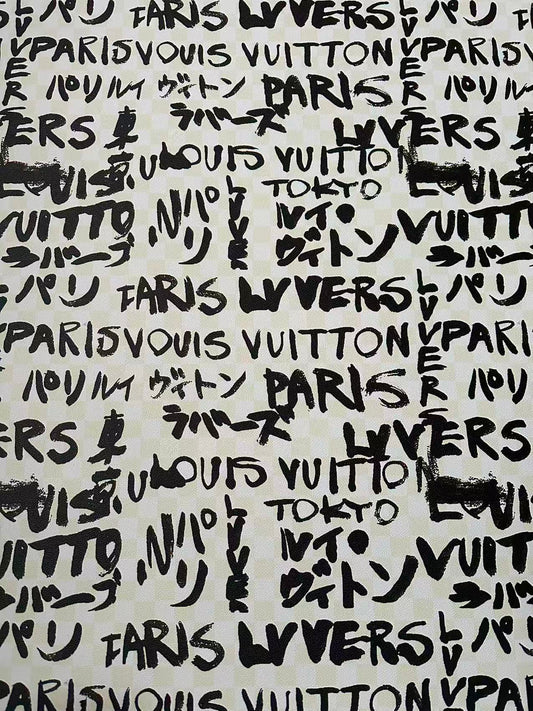 パリ PARIS LVVERS LVVERS パリ
PARIS LOUIS VUITTON PARIS VOUIS
パリ ルイ ヴィトン PARIS パリ
ラバーズ
VERS 東 LVVERS
LOUIS 京 LOUIS VUITTON LOUIS
TOKYO
VUITTO パリ LVVERS ルイ・ VUITTON
ラバーズ ヴィトン ラバーズ
パリ PARIS LVVERS LVVERS パリ
PARIS VOUIS VUITTON PARIS
パリ ルイ ヴィトン PARIS パリ
ラバーズ
ERS 東 LVVERS
LOUIS 京 LOUIS VUITTON LOUIS
TOKYO
UITTO パリ LVVERS ルイ・ VUITTON
ラバーズ ヴィトン ラバーズ
パリ PARIS LVVERS パリ
PARIS VOUIS VUITTON PARIS